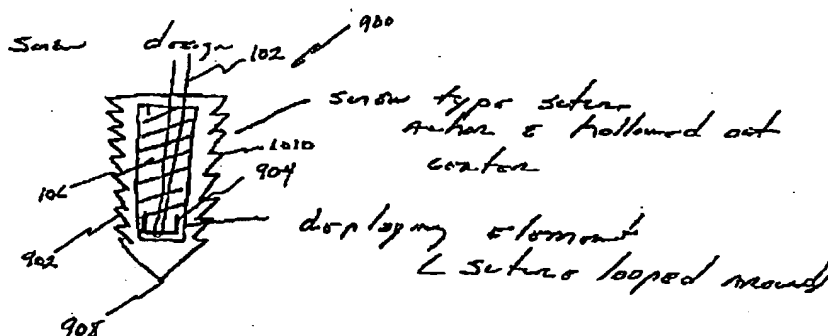 Screw design
900
102
screw type suture
anchor c hollowed out
center
1010
904
106
deploying element
c suture looped around
902
908